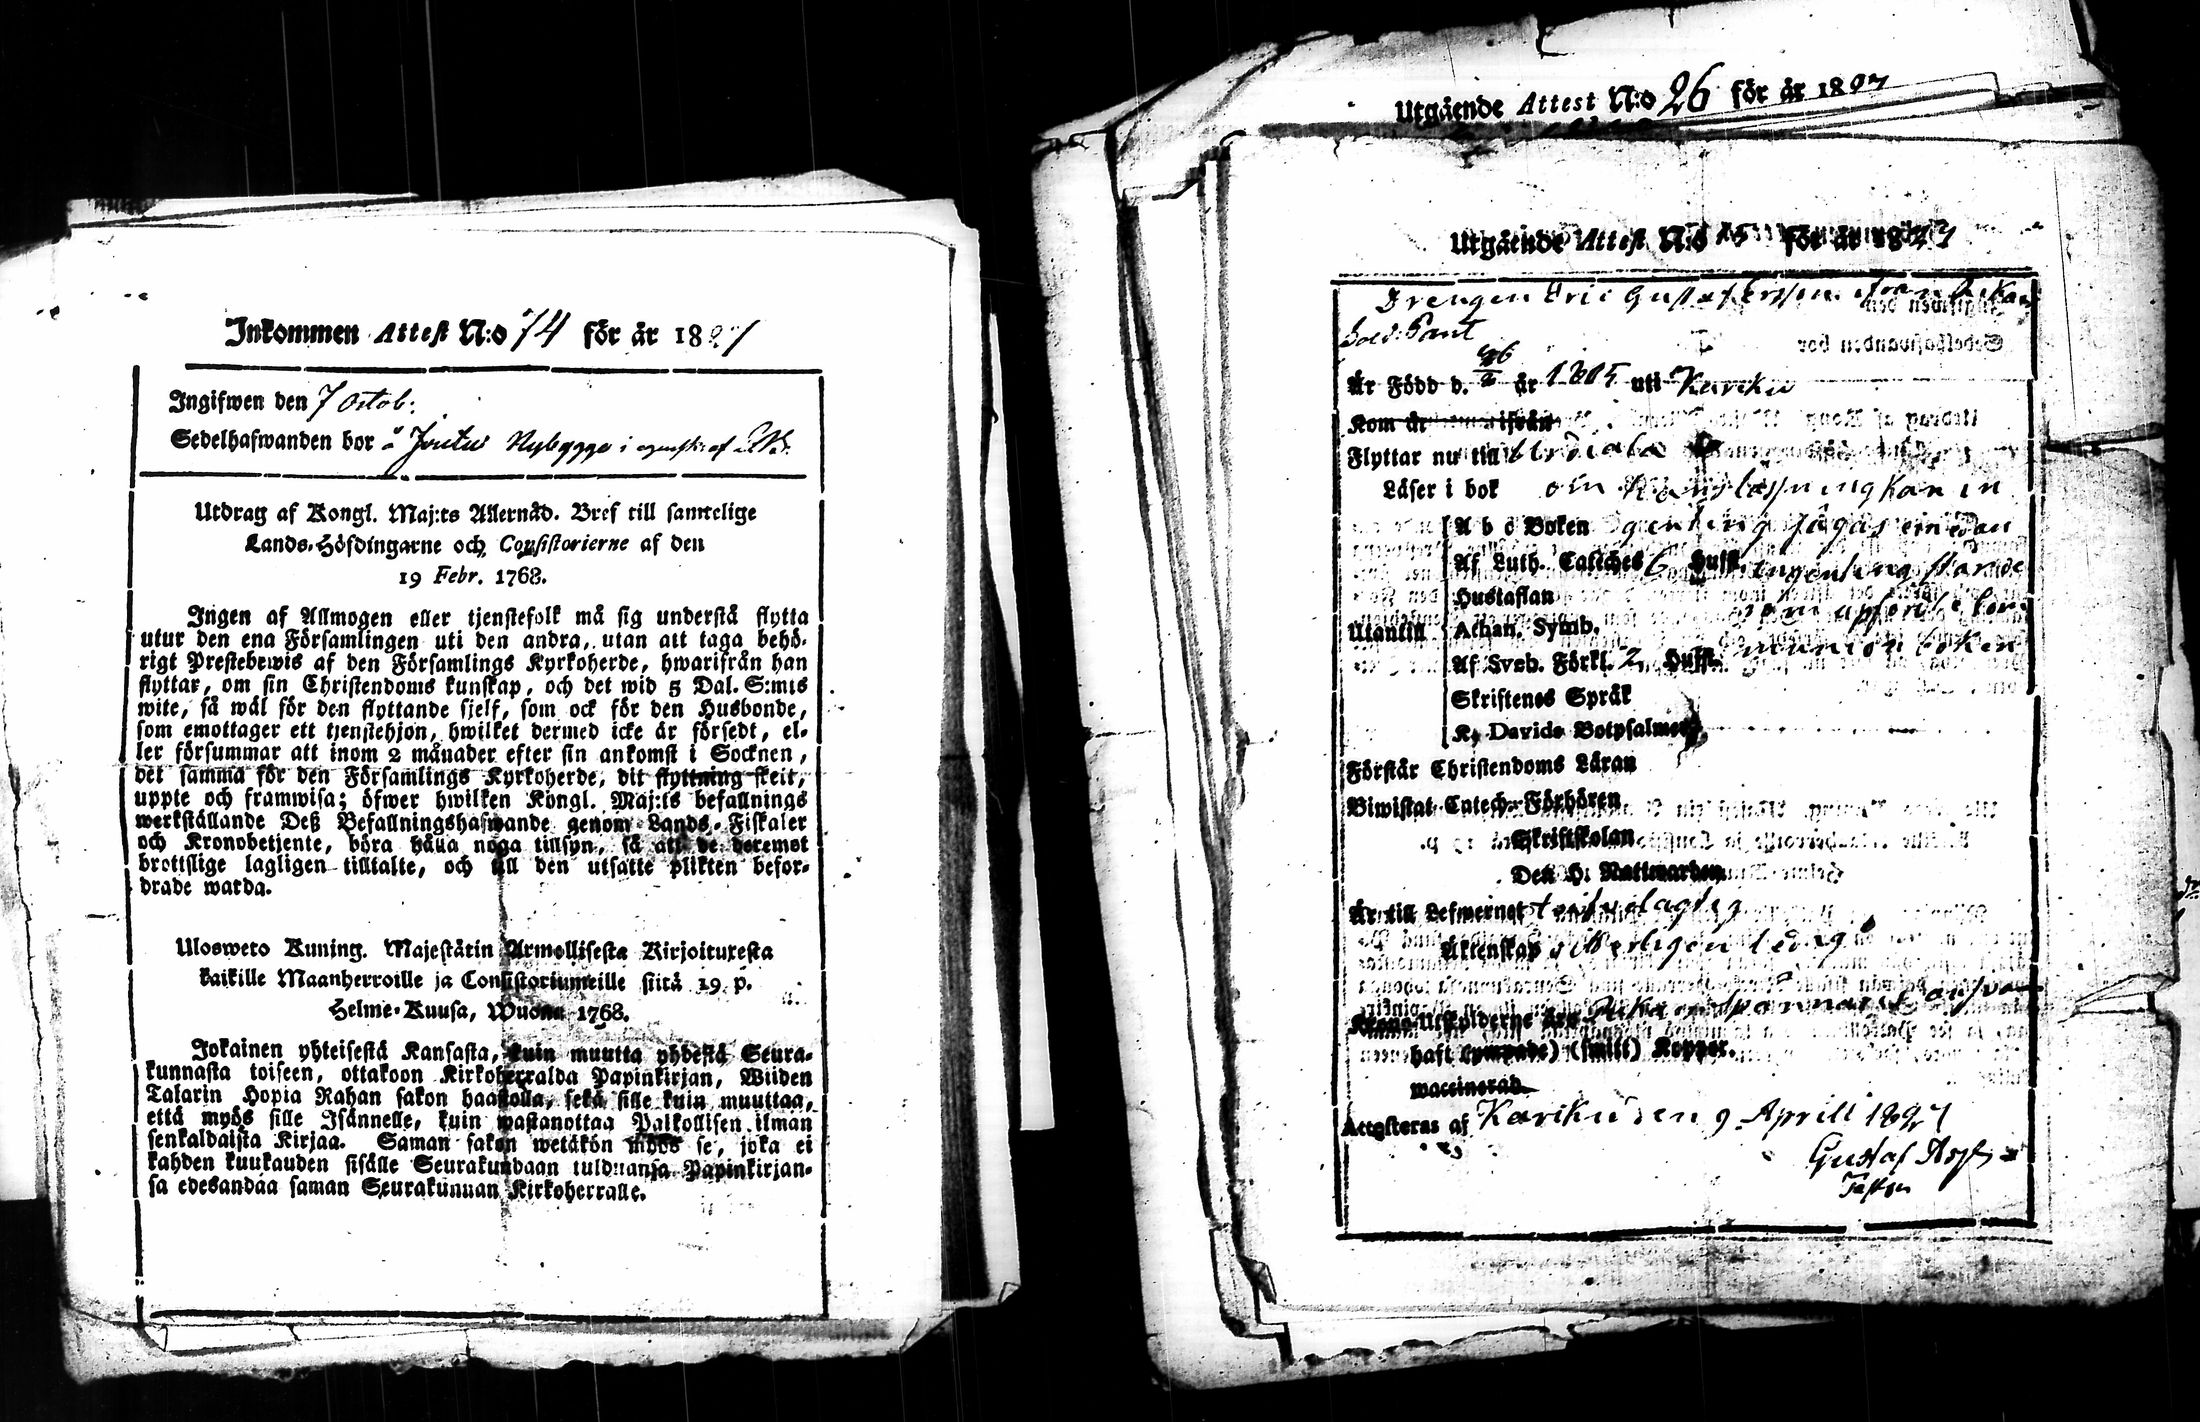 Inkommen Attest N:o 74 för år 1827
Ingifwen den 7 Octob.
Sedelhafwanden bor å Joutu Nybygge i
Utdrag af Kongl. Maj:ts Allernåd. Bref till samtelige
Lands-Höfdingarne och Consistorierne af den
19 Febr. 1768.
Ingen af Allmogen eller tjenstefolk må sig understå flytta
utur den ena Församlingen uti den andra, utan att taga behö-
rigt Prestebewis af den Församlings Kyrkoherde, hwarifrån han
flyttar, om sin Christendoms kunskap, och det wid 5 Dal. S:mts
wite, så wäl för den flyttande sjelf, som ock för den Husbonde,
som emottager ett tjenstehjon, hwilket dermed icke är försedt, el-
ler försummar att inom 2 månader efter sin ankomst i Socknen,
det samma för den Församlings Kyrkoherde, dit flyttning skeit,
uppte och framwisa; öfwer hwilken Kongl. Maj:ts befallnings
werkställande Deß Befallningshafwande genom Lands-Fiskaler
och Kronobetjente, böra hålla noga tillsyn, så att de deremot
brottslige lagligen tilltalte, och till den utsatte plikten befor-
drade warda.
Ulosweto Kuning. Majestätin Armollisesta Kirjoituxesta
kaikille Maanherroille ja Consistoriumeille siitä 19 p.
Helme-Kuusa, Wuonna 1768.
Jokainen yhteisestä Kansasta, kuin muutta yhdestä Seura-
kunnasta toiseen, ottakoon Kirkoherralda Papinkirjan, Wiiden
Talarin Hopia Rahan sakon haastolla, sekä sille kuin muuttaa,
että myös sille Isännelle, kuin wastanottaa Palkollisen ilman
senkaldaista Kirjaa. Saman sakon wetäkön myös se, joka ei
kahden kuukauden sisälle Seurakundaan tulduansa Papinkirjan-
sa edesandaa saman Seurakunnan Kirkoherralle.
Utgående Attest N:o 26 för år 1827
Utgående Attest N:o för år 1827
Drengen Eric Gustafsson ifrån
Sold: Pant
Är Född d. 26/2 år 1805 uti Karcku
Kom år ifrån
Flyttar nu till Urdiala
Läser i bok om Kunskapen kan in
A b c Boken genting sägas emedan
Af Luth. Catiches 6 Hufst. ingenting står
Hustaflan
Utantill Athan. Symb.
Af Sveb. Förkl. 2 Hufst. munion boken
Skriftenes Språk
K. Davids Botpsalmer
Förstår Christendoms Läran
Biwistat Catech. Förhören
Skriftskolan
Den H. Nattwarden
Är till Lefwernet
Äktenskap ledig
Krono-Utskylderne äro
haft (ympade) (smitt) Koppor.
waccinerad
Attesteras af Karcku den 9 Aprill 1827
Gustaf